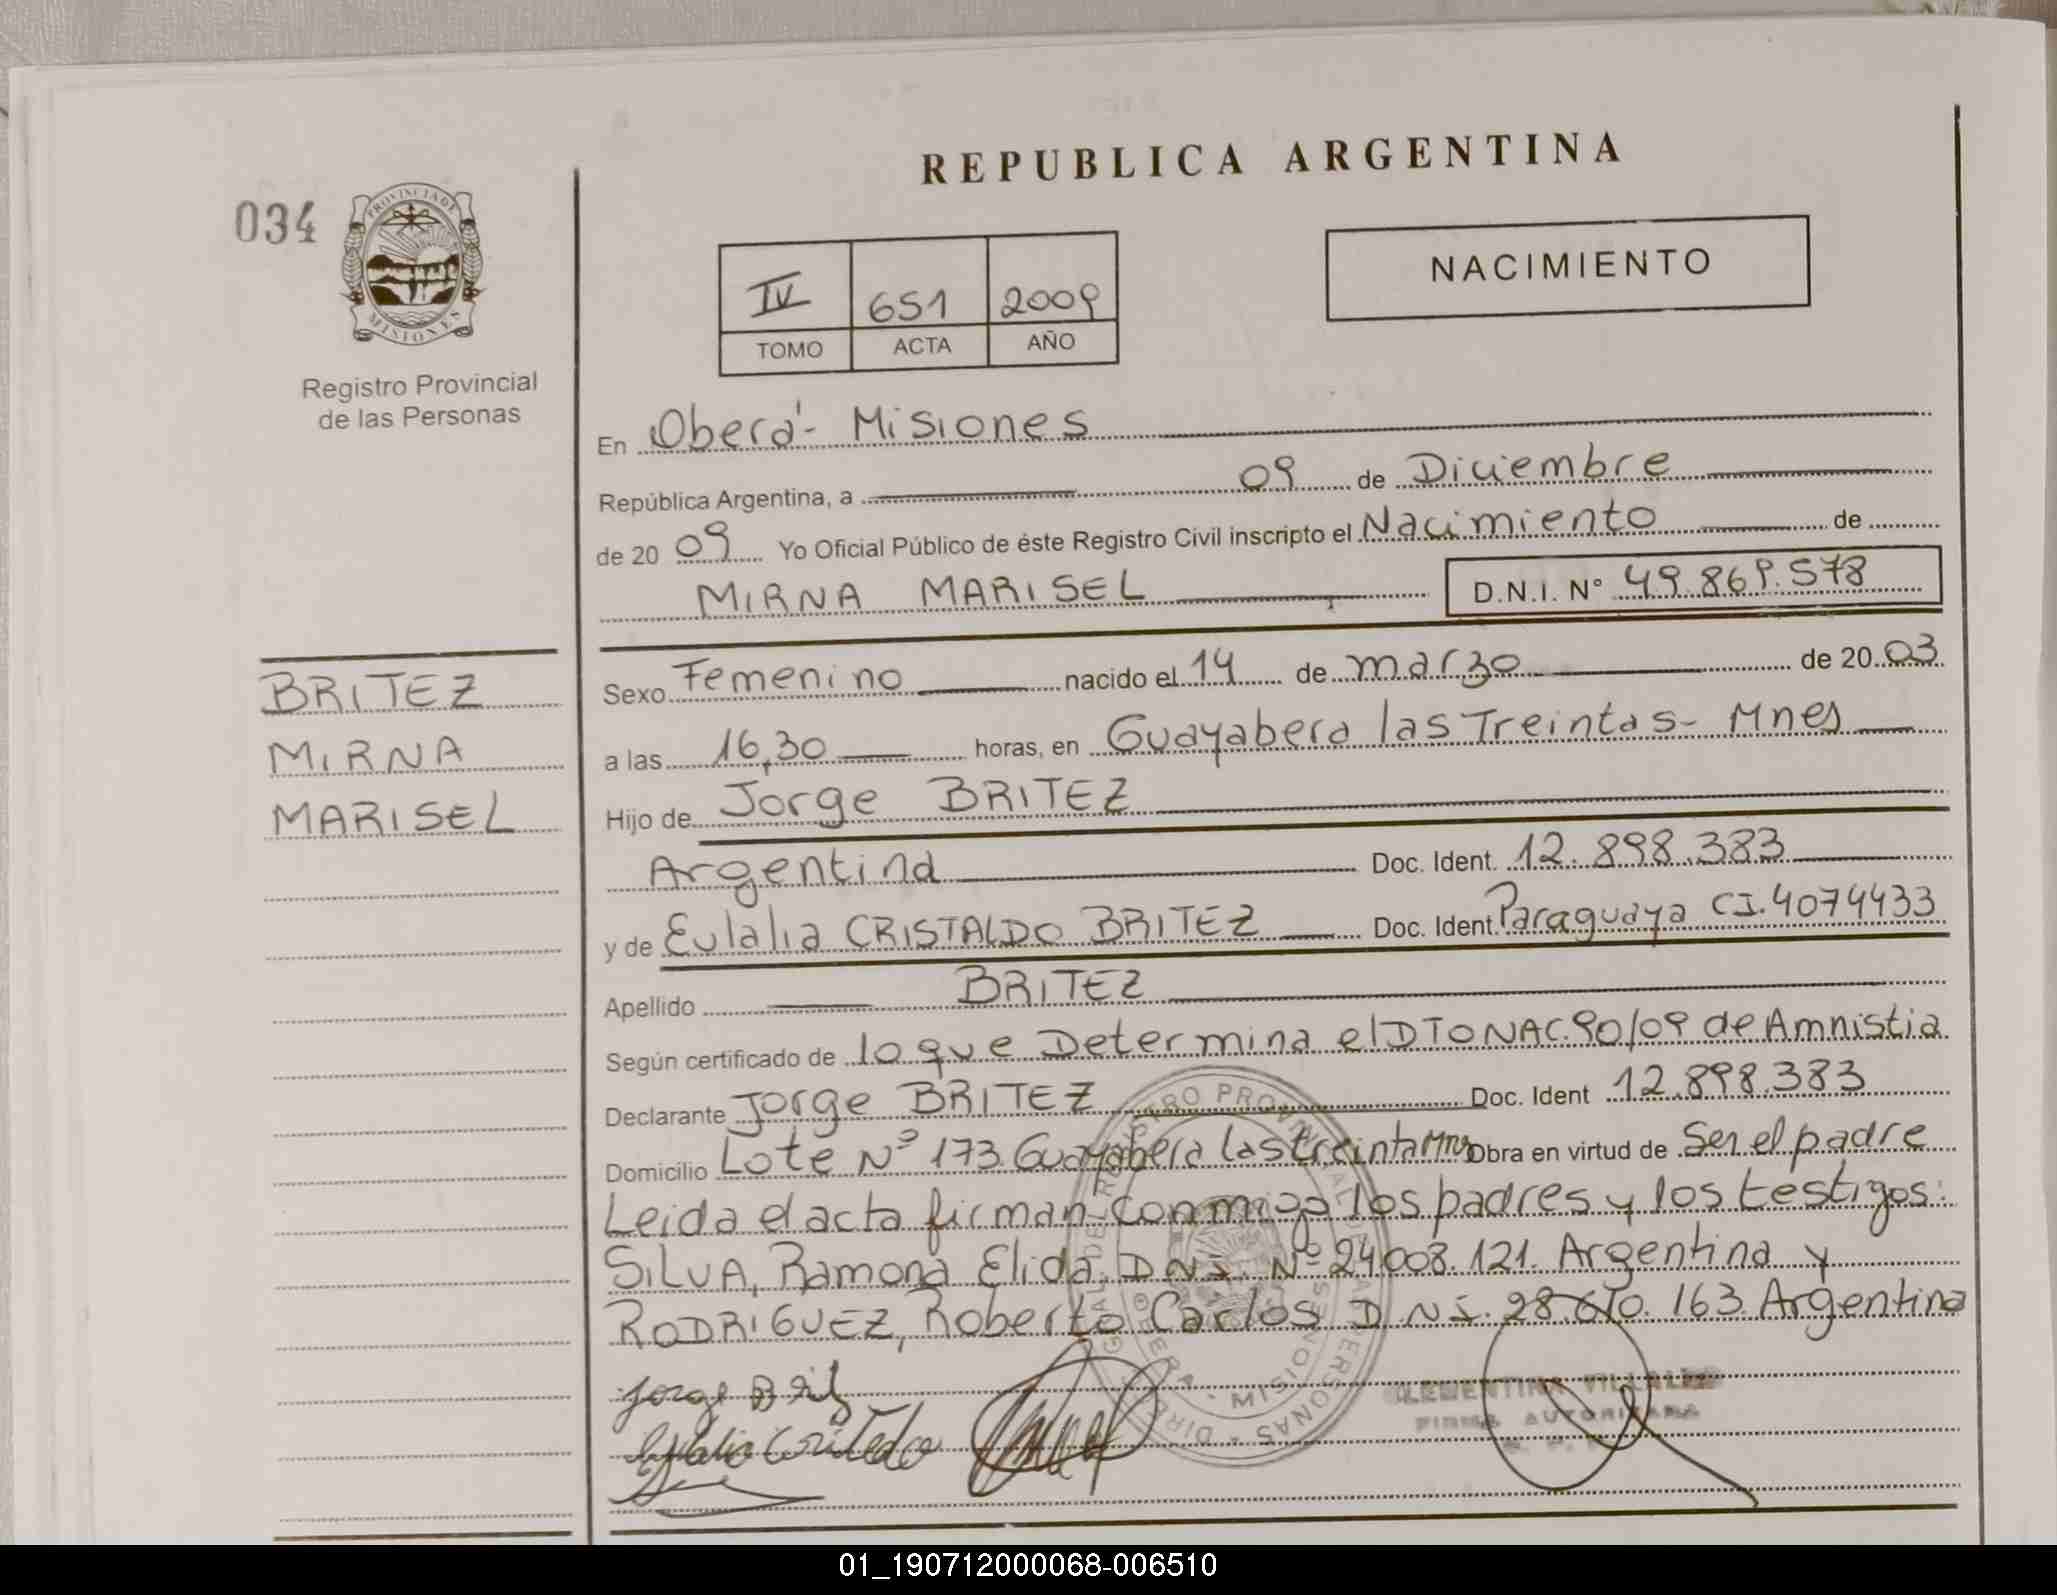 REPUBLICA ARGENTINA
034
PROVINCIA DE
MISIONES
Registro Provincial
de las Personas
NACIMIENTO
IV 651 2009
TOMO ACTA AÑO
En Oberá - Misiones
República Argentina, a 09 de Diciembre
de 20 09 Yo Oficial Público de éste Registro Civil inscripto el Nacimiento de
MIRNA MARISEL D.N.I. N° 49.869.578
BRITEZ
MIRNA
MARISEL
Sexo Femenino nacido el 14 de marzo de 20 03
a las 16,30 horas, en Guayabera las Treintas - Mnes
Hijo de Jorge BRITEZ
Argentina Doc. Ident. 12.898.383
y de Eulalia CRISTALDO BRITEZ Doc. Ident. Paraguaya CI. 4074433
Apellido BRITEZ
Según certificado de lo que Determina el DTO NAC. 90/09 de Amnistia
Declarante Jorge BRITEZ Doc. Ident 12.898.383
Domicilio Lote N° 173 Guayabera las treinta Mns Obra en virtud de Ser el padre
Leida el acta firman conmigo los padres y los testigos:
SILVA, Ramona Elida, D.N.I. N° 24.008.121. Argentina y
RODRIGUEZ, Roberto Carlos D.N.I. 28.610.163 Argentina
Jorge
CLEMENTINA VILLALBA
FIRMA AUTORIZADA
01_190712000068-006510